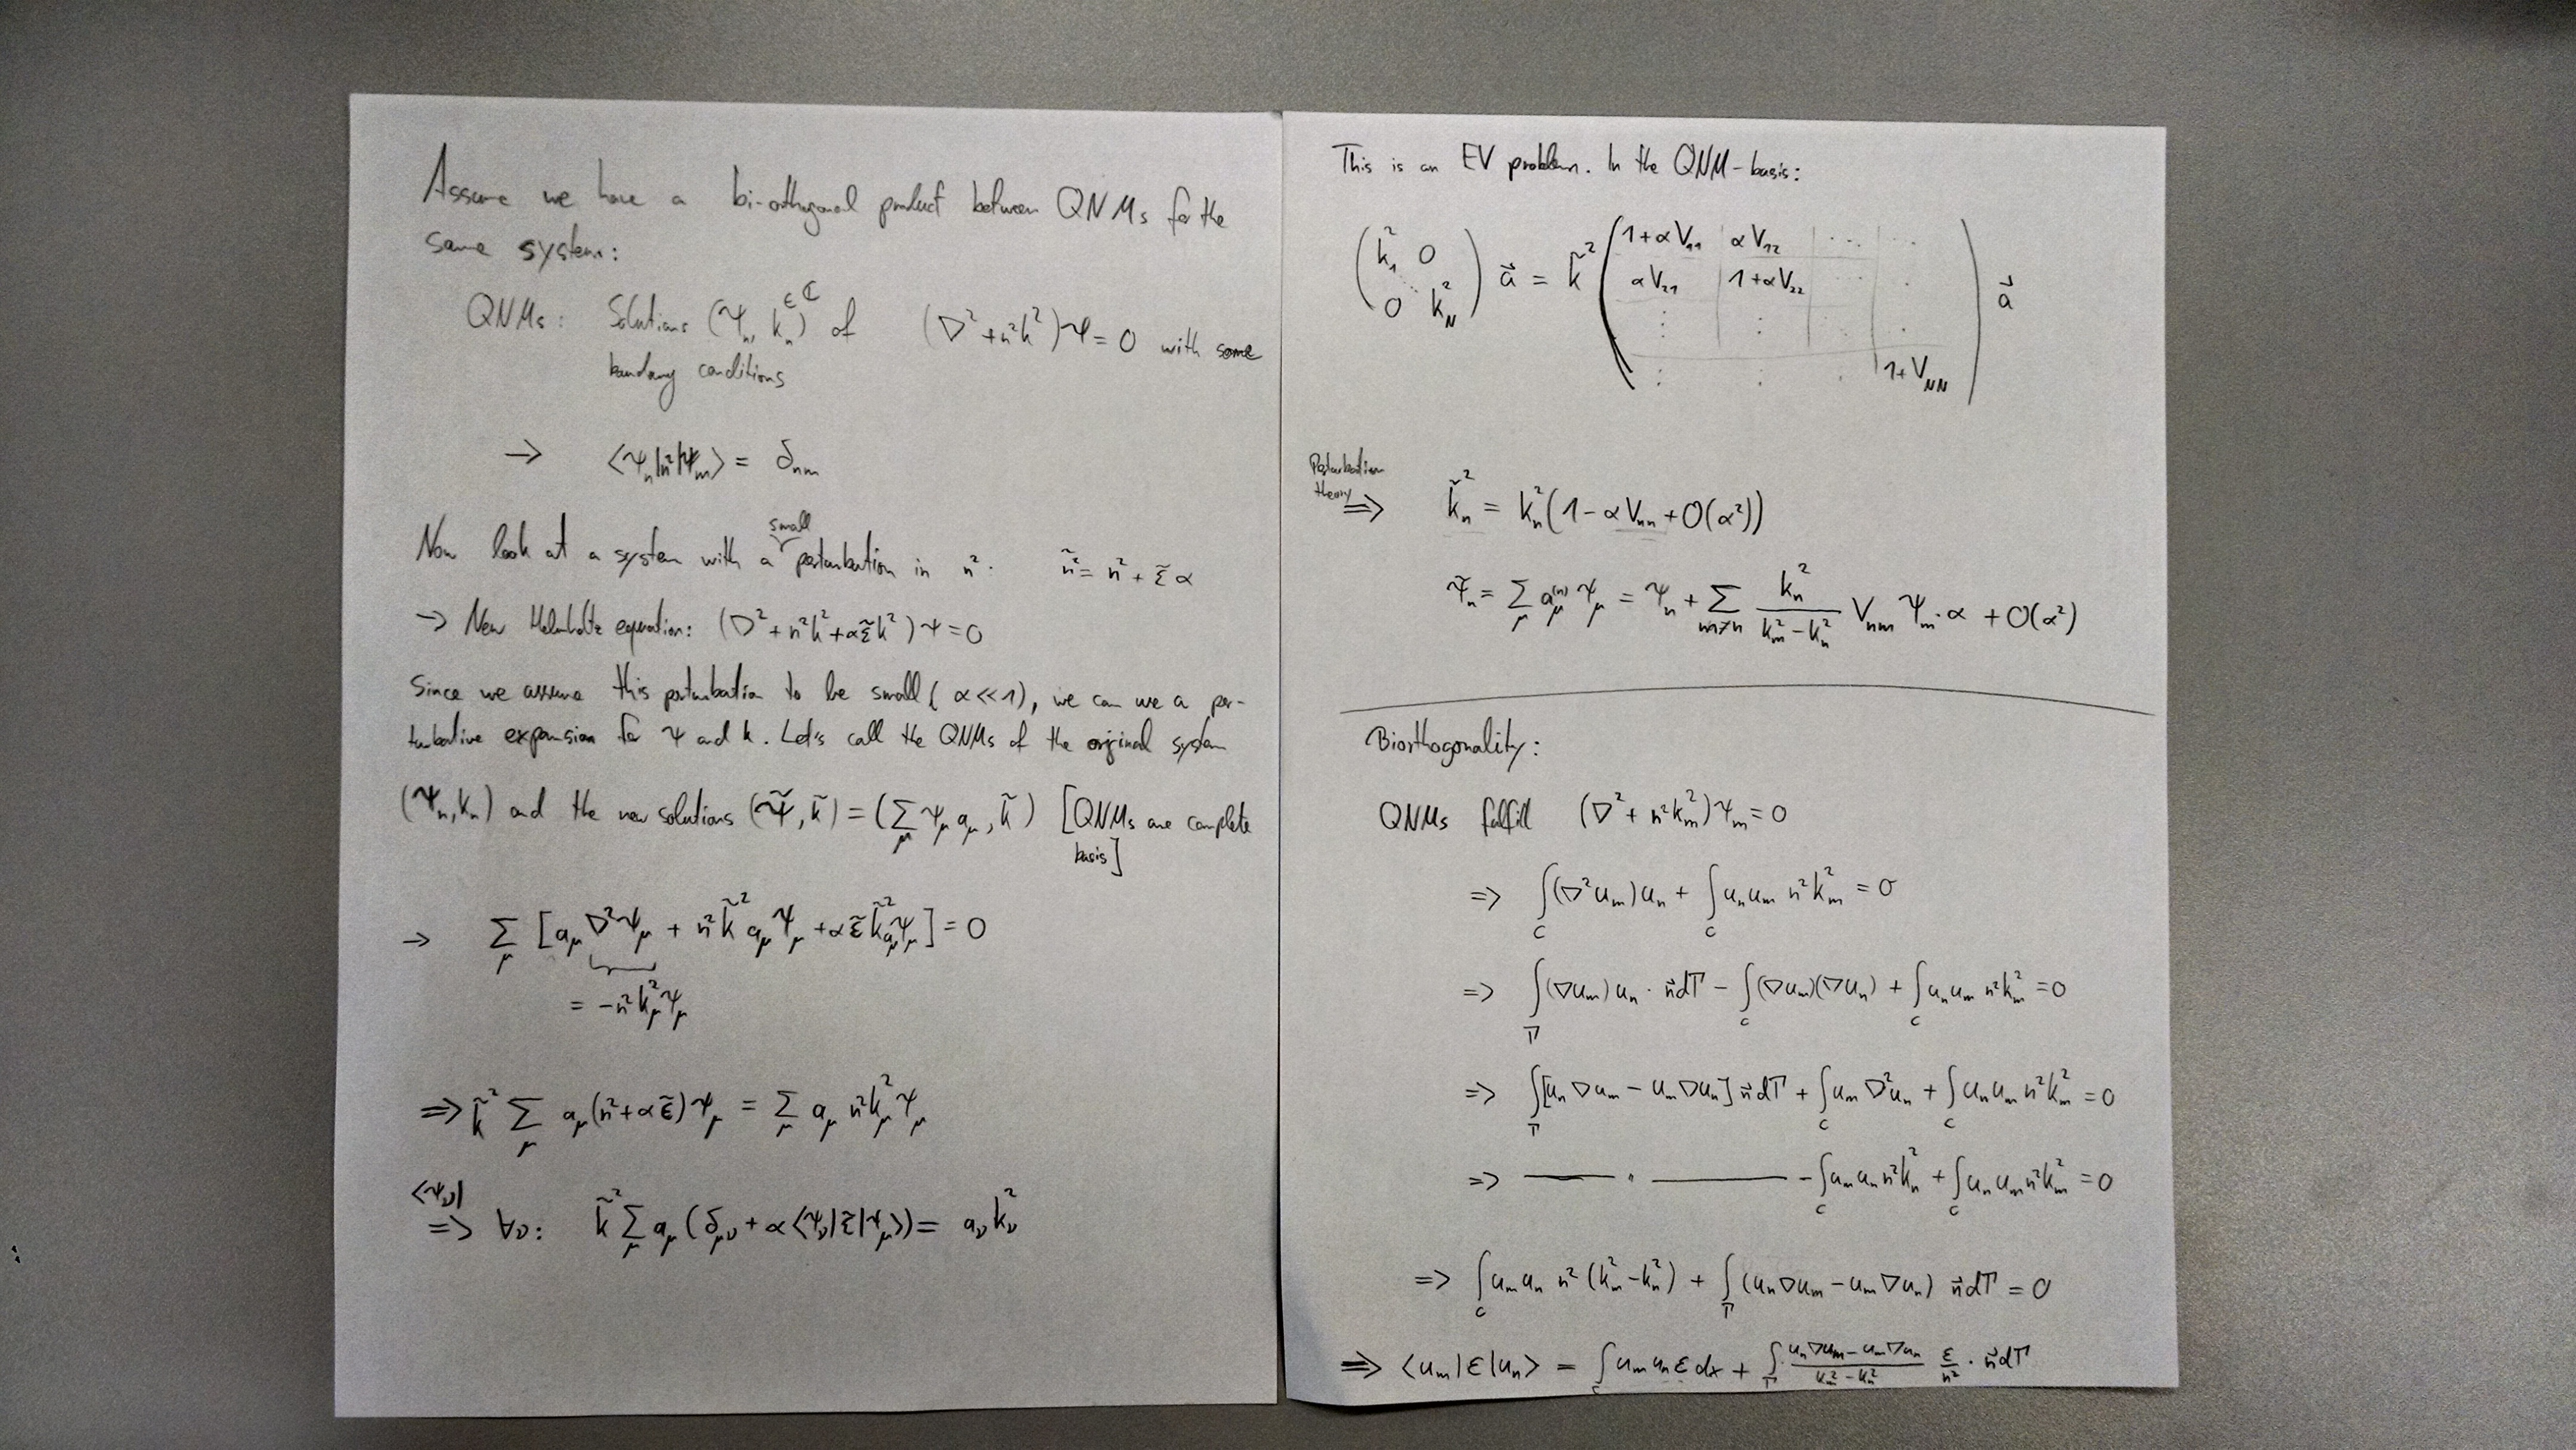 Assume we have a bi-orthogonal product between QNMs for the
same system:
QNMs: Solutions (Ψₙ, kₙ)^∈ℂ of (∇² + n²k²)Ψ = 0 with some
boundary conditions
→ ⟨Ψₙ|n²|Ψₘ⟩ = δₙₘ
Now look at a system with a small perturbation in n². ñ² = n² + ε̃α
→ New Helmholtz equation: (∇² + n²k² + αε̃k²)Ψ = 0
Since we assume this perturbation to be small (α<<1), we can use a per-
turbative expansion for Ψ and k. Let's call the QNMs of the original system
(Ψₙ, kₙ) and the new solutions (Ψ̃, k̃) = (∑_μ Ψ_μ a_μ, k̃) [QNMs are complete
basis]
→ ∑_μ [a_μ ∇²Ψ_μ + n²k̃² a_μ Ψ_μ + αε̃k̃² a_μ Ψ_μ] = 0
= -n²k_μ²Ψ_μ
⇒ k̃² ∑_μ a_μ (n² + αε̃)Ψ_μ = ∑_μ a_μ n²k_μ²Ψ_μ
⟨Ψ_ν|
⇒ ∀ν: k̃² ∑_μ a_μ (δ_μν + α⟨Ψ_ν|ε̃|Ψ_μ⟩) = a_ν k_ν²
This is an EV problem. In the QNM-basis:
k₁² 0 1+αV₁₁ αV₁₂ ... ..
a⃗ = k̃² αV₂₁ 1+αV₂₂ a⃗
0 k_N²
1+V_NN
Perturbation
theory
⇒ k̃ₙ² = kₙ²(1 - αVₙₙ + O(α²))
Ψ̃ₙ = ∑_μ a_μ^(n) Ψ_μ = Ψₙ + ∑_{m≠n} kₙ²/(kₘ² - kₙ²) Vₙₘ Ψₘ · α + O(α²)
Biorthogonality:
QNMs fulfill (∇² + n²kₘ²)Ψₘ = 0
⇒ ∫_C (∇²uₘ)uₙ + ∫_C uₙuₘ n²kₘ² = 0
⇒ ∫_Γ (∇uₘ)uₙ · n⃗dΓ - ∫_C (∇uₘ)(∇uₙ) + ∫_C uₙuₘ n²kₘ² = 0
⇒ ∫_Γ [uₙ∇uₘ - uₘ∇uₙ] n⃗dΓ + ∫_C uₘ∇²uₙ + ∫_C uₙuₘ n²kₘ² = 0
⇒ —— " —— - ∫_C uₘuₙn²kₙ² + ∫_C uₙuₘn²kₘ² = 0
⇒ ∫_C uₘuₙ n²(kₘ² - kₙ²) + ∫_Γ (uₙ∇uₘ - uₘ∇uₙ) n⃗dΓ = 0
⇒ ⟨uₘ|ε|uₙ⟩ = ∫_C uₘuₙε dx + ∫_Γ (uₙ∇uₘ - uₘ∇uₙ)/(kₘ² - kₙ²) ε/n² · n⃗dΓ